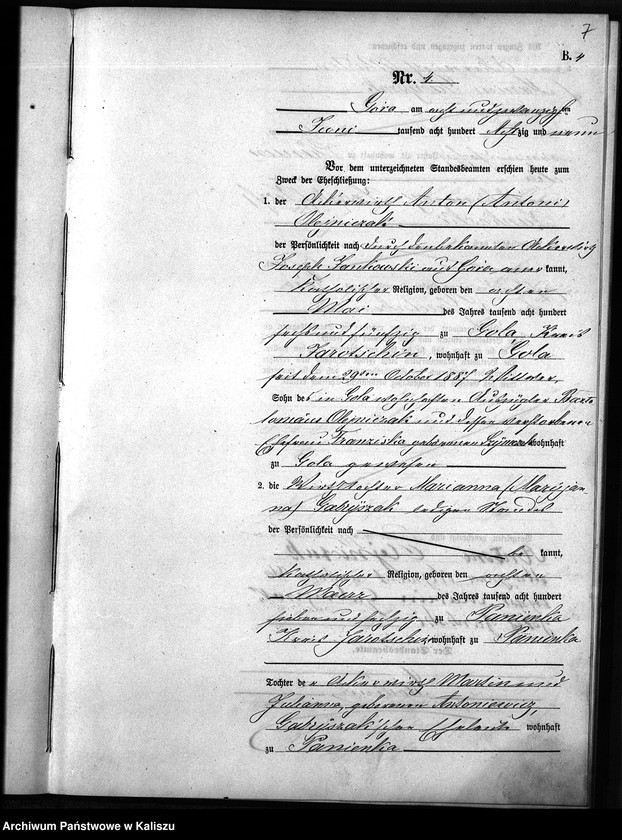 7
B. 4
Nr. 4
Góra am acht und zwanzigsten
Juni tausend acht hundert Achtzig und neun
Vor dem unterzeichneten Standesbeamten erschien heute zum
Zweck der Eheschließung:
1. der Ackerwirth Anton (Antoni)
Olejniczak
der Persönlichkeit nach durch den bekannten Ackerwirth
Joseph Jankowski aus Góra aner kannt,
katholischer Religion, geboren den achten
Mai des Jahres tausend acht hundert
sechs und fünfzig zu Gola Kreis
Jarotschin, wohnhaft zu Gola
seit dem 29ten October 1887 Wittwer,
Sohn des in Gola wohnhaften Auszügler Barto
lomäus Olejniczak und dessen verstorbenen
Ehefrau Franziska geborenen wohnhaft
zu Gola gewesen
2. die Wirthstochter Marianna (Maryjan
na) Gabryszak ledigen Standes
der Persönlichkeit nach
be kannt,
katholischer Religion, geboren den achten
Maerz des Jahres tausend acht hundert
sieben und sechzig zu Panienka
Kreis Jarotschin, wohnhaft zu Panienka
Tochter der Ackerwirth Martin und
Julianna, geborenen Antoniewicz,
Gabryszak'schen Eheleute wohnhaft
zu Panienka
Archiwum Państwowe w Kaliszu